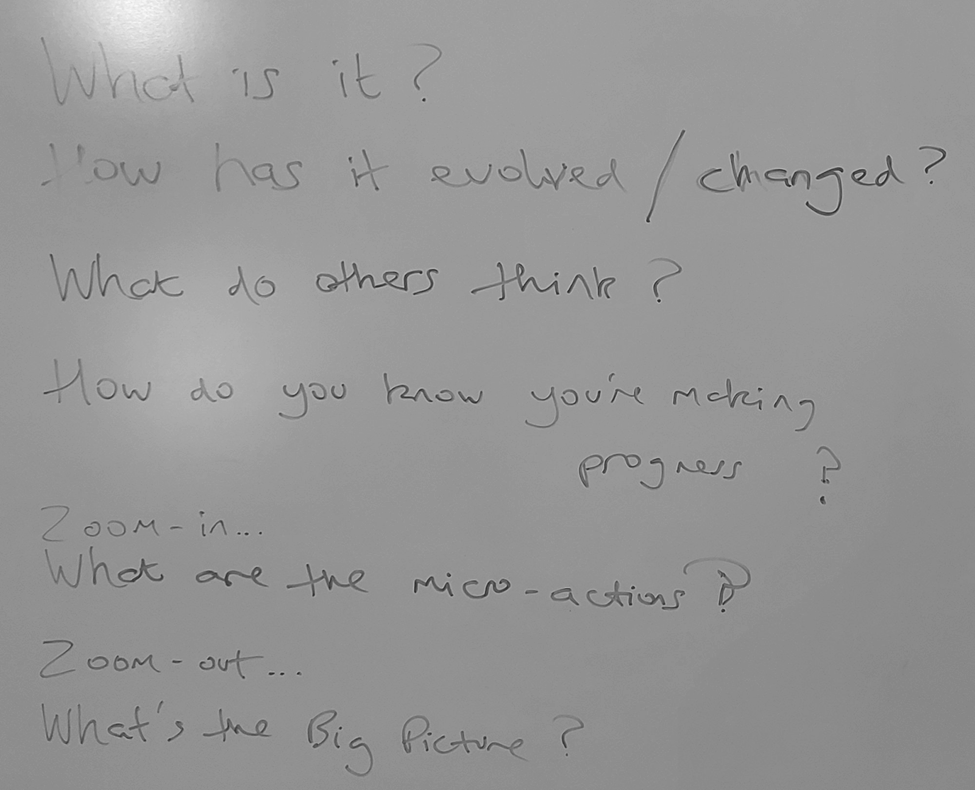 What is it?
How has it evolved / changed?
What do others think?
How do you know you're making
progress ?
Zoom-in...
What are the micro-actions?
Zoom-out...
What's the Big Picture?